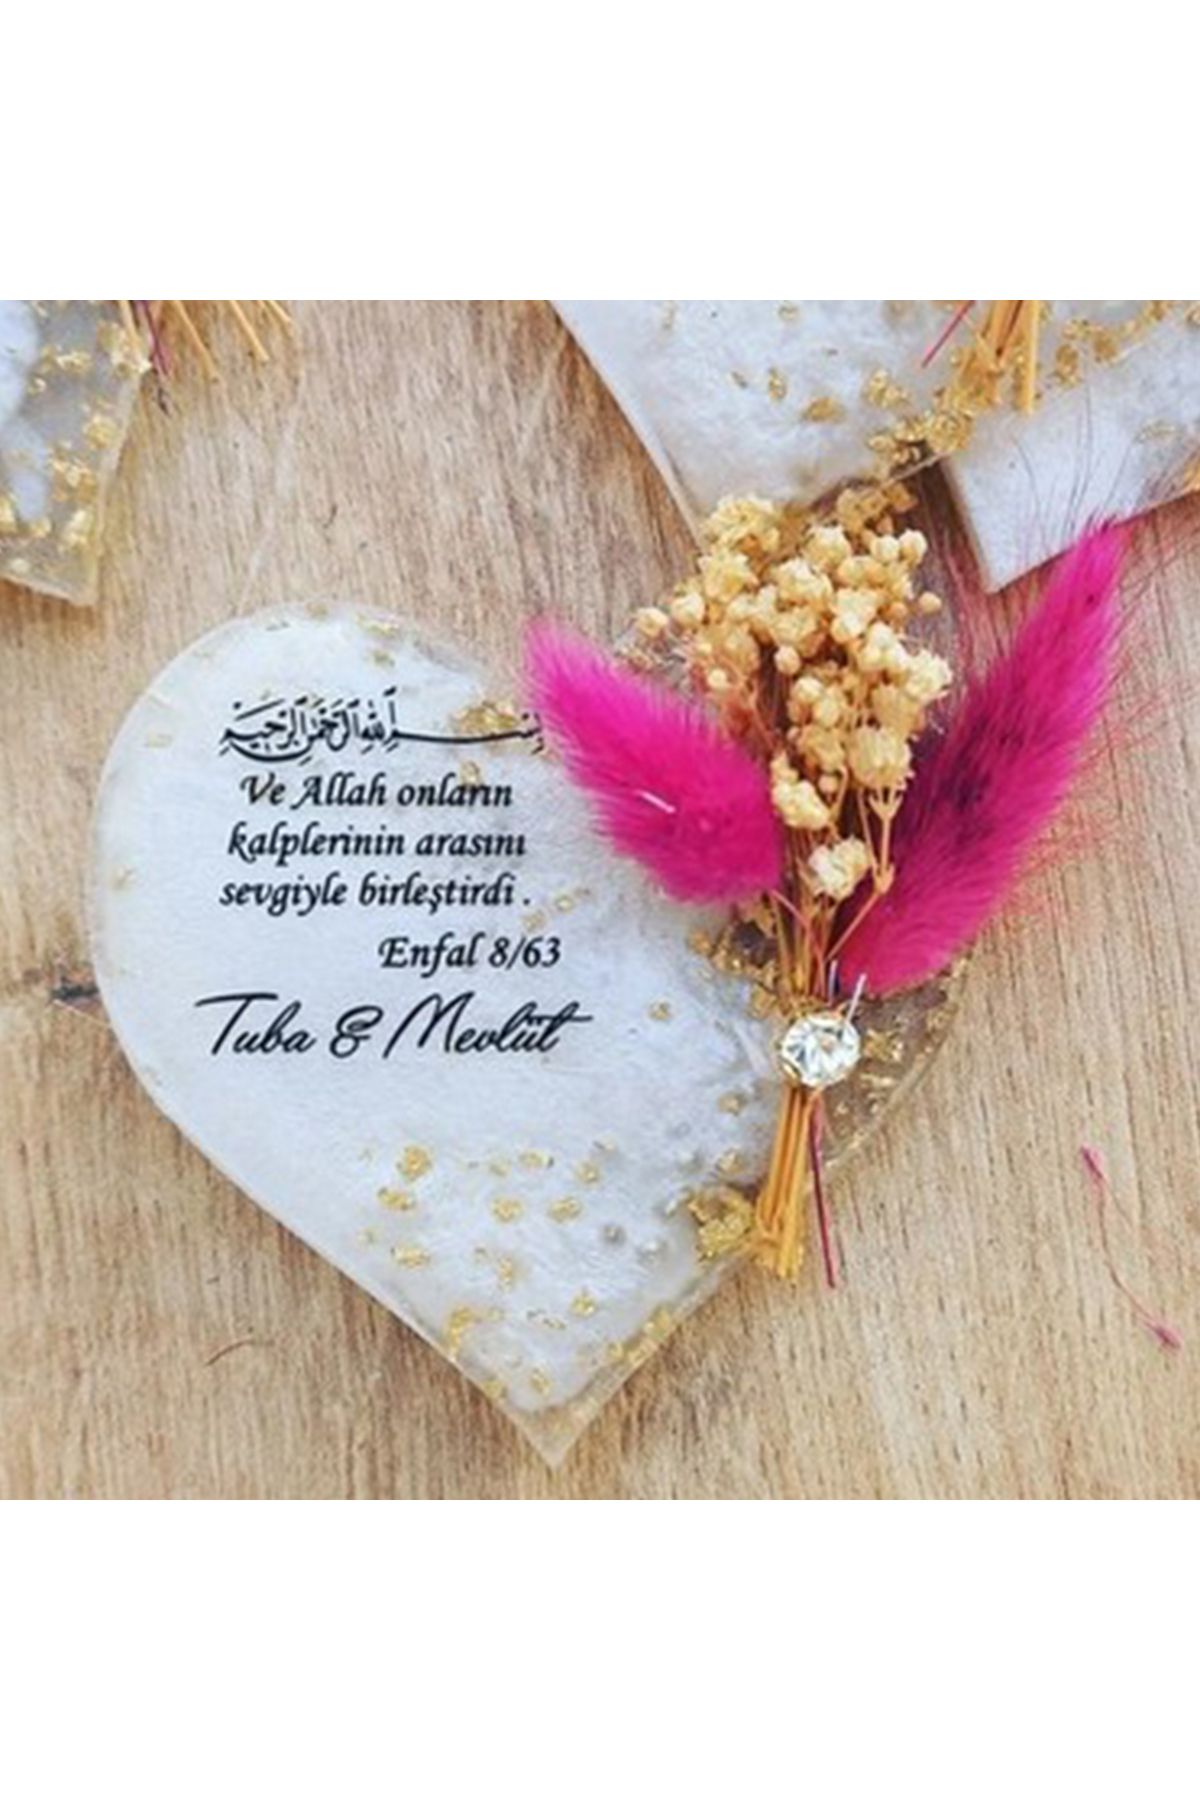 بسم الله الرحمن الرحيم
Ve Allah onların
kalplerinin arasını
sevgiyle birleştirdi .
Enfal 8/63
Tuba & Mevlüt